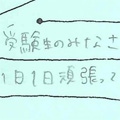 受験生のみなさ
1日1日頑張って